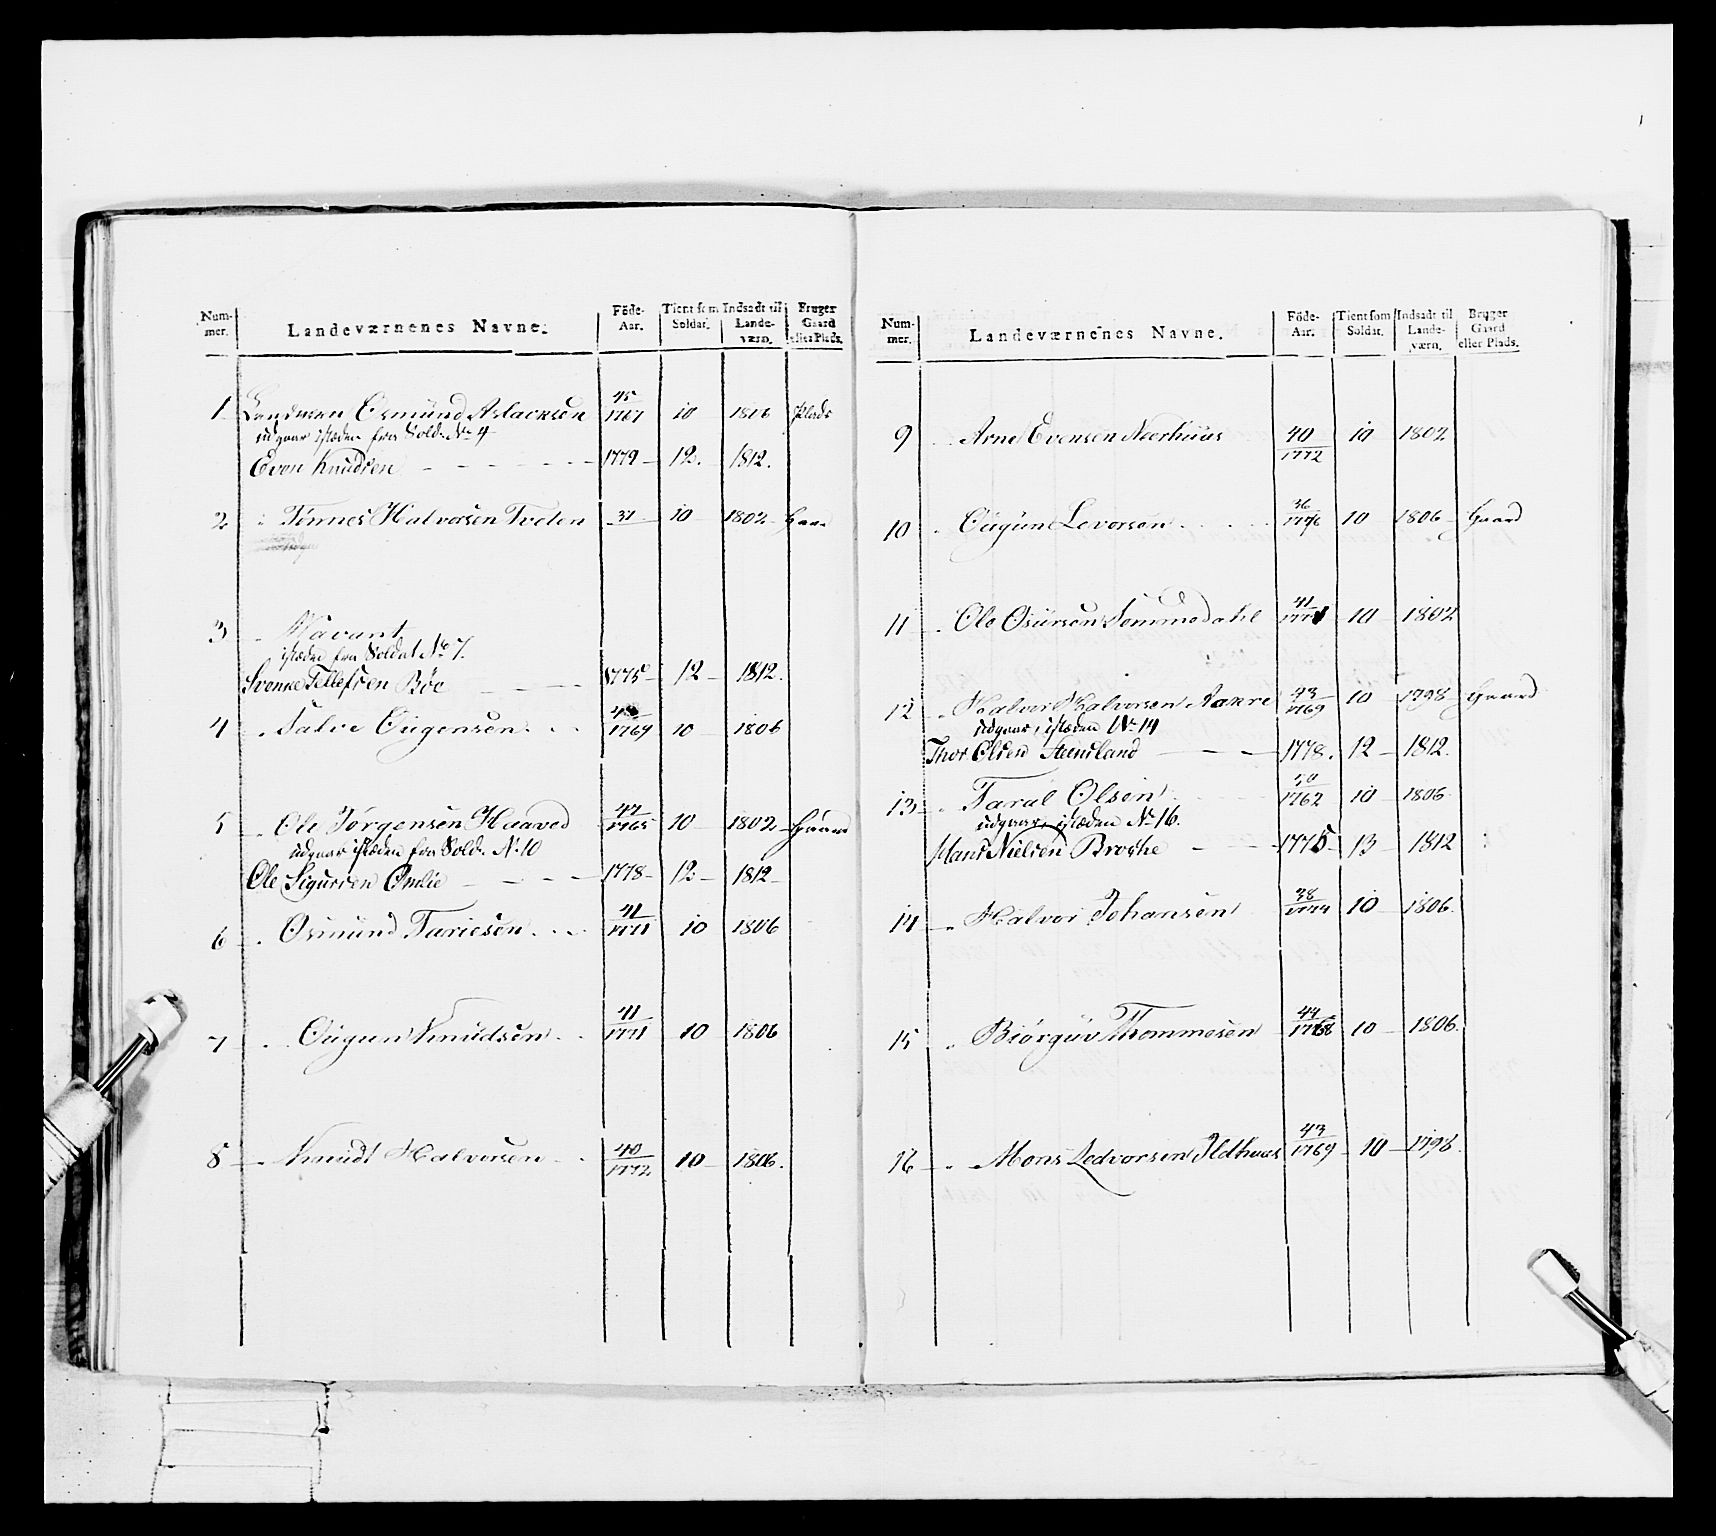 Num-
mer.
Landeværnenes Navne.
Föde-
Aar.
Tient som
Soldat.
Indsadt til
Lande-
værn.
Bruger
Gaard
eller Plads.
1 Osmund Aslacksen 45/1767 10 1806 Plads
udgaar istæden fra Sold. No 4
Even Knudsen 1779 12. 1812.
2 Tønnes Halvorsen Tveten 37 10 1802
3 Vacant
istæden fra Soldat No 7.
Tellefsen Böe 1775 12 1812.
4 Salve Ougensen 1769 10 1806
5 Ole Jörgensen Haaved 47/1765 10 1802 Gaard
udgaar istæden fra Sold. No 10
Ole Sigursen Omlie 1778 12 1812
6 Osmund Tariesen 41/1771 10 1806
7 Ougun Knudsen 41/1771 10 1806
8 Knudt Halvorsen 40/1772 10 1806.
Num-
mer.
Landeværnenes Navne.
Föde-
Aar.
Tient som
Soldat.
Indsadt til
Lande-
værn.
Bruger
Gaard
eller Plads.
9 Arne Evensen Neerhuus 40/1772 10 1802
10 Ougun Levorsen 36/1776 10 1806 Gaard
11 Ole Osursen 41/1771 10 1802
12 Halvor Halvorsen Aakre 43/1769 10 1798 Gaard
udgaar, istæden No 14
Thor Olsen 1778. 12 1812.
13 Taral Olsen 50/1762 10 1806
udgaar, istæden No 16.
Hans Nielsen 1775 13 1812
14 Halvor Johansen 38/1774 10 1806.
15 Biörguv Thommesen 44/1768 10 1806.
16 Mons Ledvorsen Ildhuus 43/1769 10 1798.